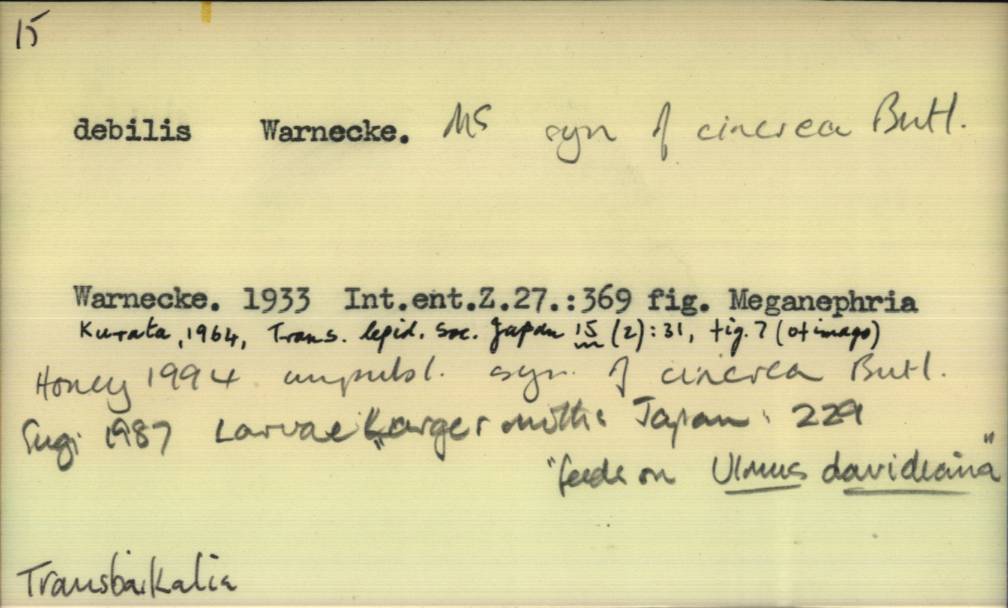 15
debilis Warnecke. MS syn of cinerea Butl.
Warnecke. 1933 Int.ent.Z.27.:369 fig. Meganephria
Kurata, 1964, Trans. lepid. Soc. Japan 15 (2):31, fig. 7 (of imago)
Honey 1994 unpubl. syn. of cinerea Butl.
Sugi 1987 Larvae Larger moths Japan: 229
"feeds on Ulmus davideana"
Transbaikalia